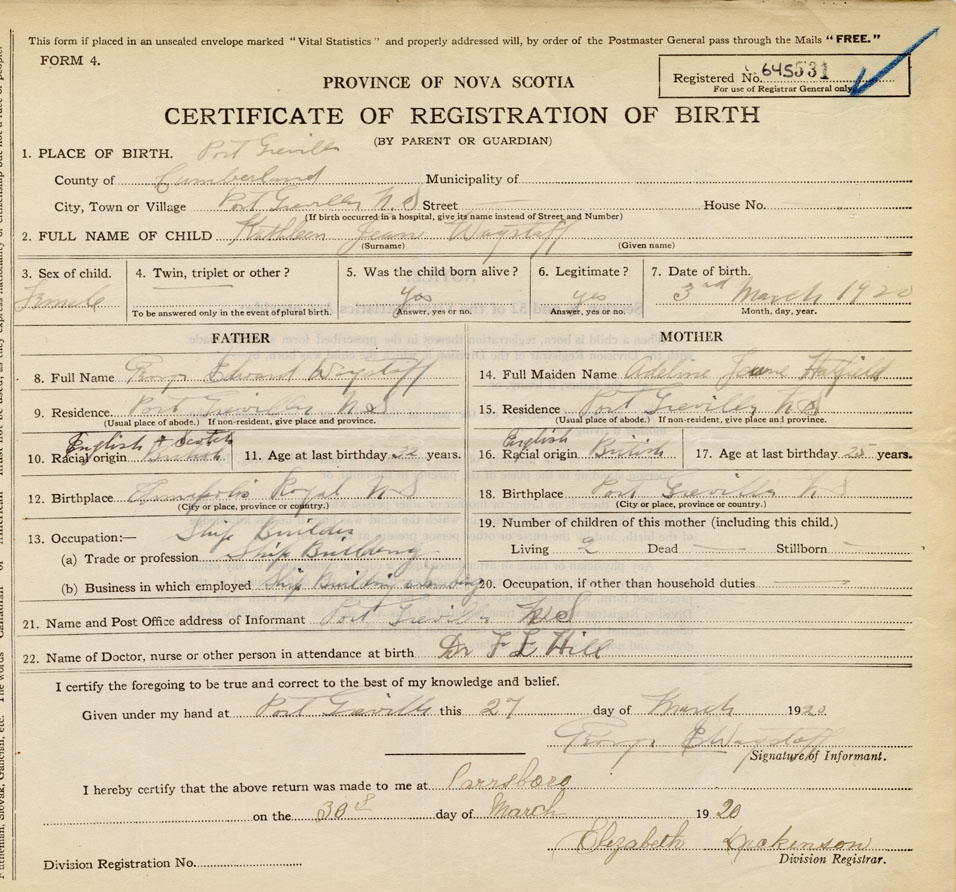 This form if placed in an unsealed envelope marked "Vital Statistics" and properly addressed will, by order of the Postmaster General pass through the Mails "FREE."
FORM 4.
Registered No. 645531
For use of Registrar General only.
PROVINCE OF NOVA SCOTIA
CERTIFICATE OF REGISTRATION OF BIRTH
(BY PARENT OR GUARDIAN)
1. PLACE OF BIRTH. Port Greville
County of Cumberland Municipality of
City, Town or Village Port Greville N.S Street House No.
(If birth occurred in a hospital, give its name instead of Street and Number)
2. FULL NAME OF CHILD Kathleen Jean Wagstaff
(Surname) (Given name)
3. Sex of child. 4. Twin, triplet or other? 5. Was the child born alive? 6. Legitimate? 7. Date of birth.
Female yes yes 3rd March 1920
To be answered only in the event of plural birth. Answer, yes or no. Answer, yes or no. Month, day, year.
FATHER MOTHER
8. Full Name George Edward Wagstaff 14. Full Maiden Name Adeline Hatfield
9. Residence. Port Greville N S 15. Residence Port Greville N S
(Usual place of abode.) If non-resident, give place and province. (Usual place of abode.) If non-resident, give place and province.
English + Scotch English
10. Racial origin British 11. Age at last birthday years. 16. Racial origin British 17. Age at last birthday 25 years.
12. Birthplace Annapolis Royal N S 18. Birthplace Port Greville N S
(City or place, province or country.) (City or place, province or country.)
13. Occupation:— Ship Builder 19. Number of children of this mother (including this child.)
(a) Trade or profession Ship Building Living 2 Dead Stillborn
(b) Business in which employed Ship Building 20. Occupation, if other than household duties
21. Name and Post Office address of Informant Port Greville N S
22. Name of Doctor, nurse or other person in attendance at birth Dr F L Hill
I certify the foregoing to be true and correct to the best of my knowledge and belief.
Given under my hand at Port Greville this 27 day of March 1920
George E Wagstaff
Signature of Informant.
I hereby certify that the above return was made to me at Parrsboro
on the 30 day of March 1920
Elizabeth Dickinson
Division Registrar.
Division Registration No.